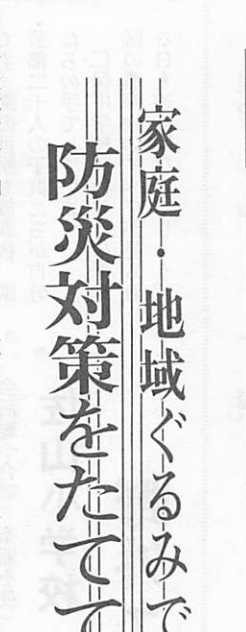 家庭・地域ぐるみで
防災対策をたてて